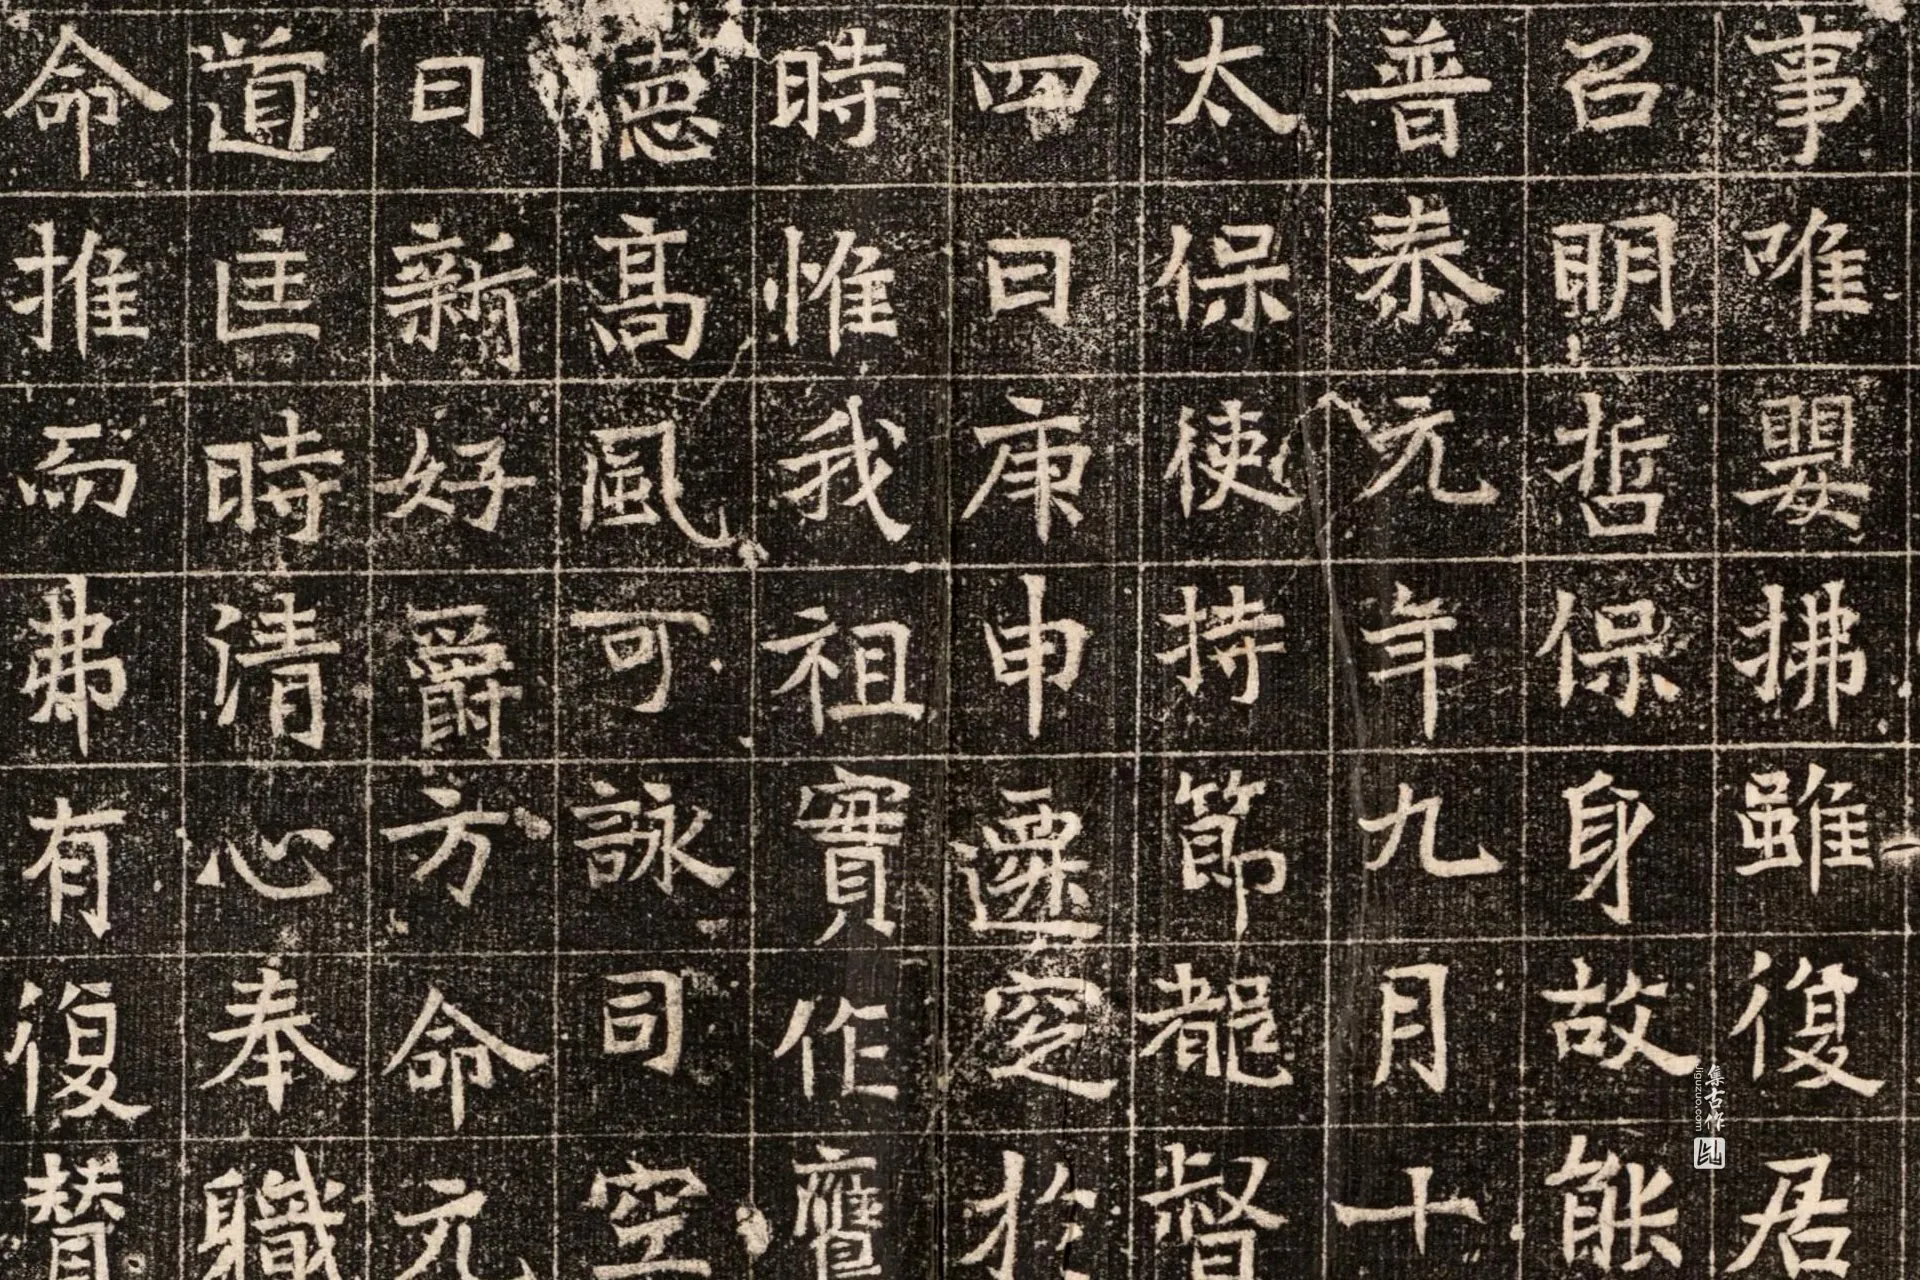 事唯嬰拂雖復居
召明哲保身故能
普泰元年九月十
太保使持節都督
四日庚申遷窆於
時惟我祖實作膺
德高風可詠司空
日新好爵方命元
道匡時清心奉職
命推而弗有復贊
集古作
jiguzuo.com